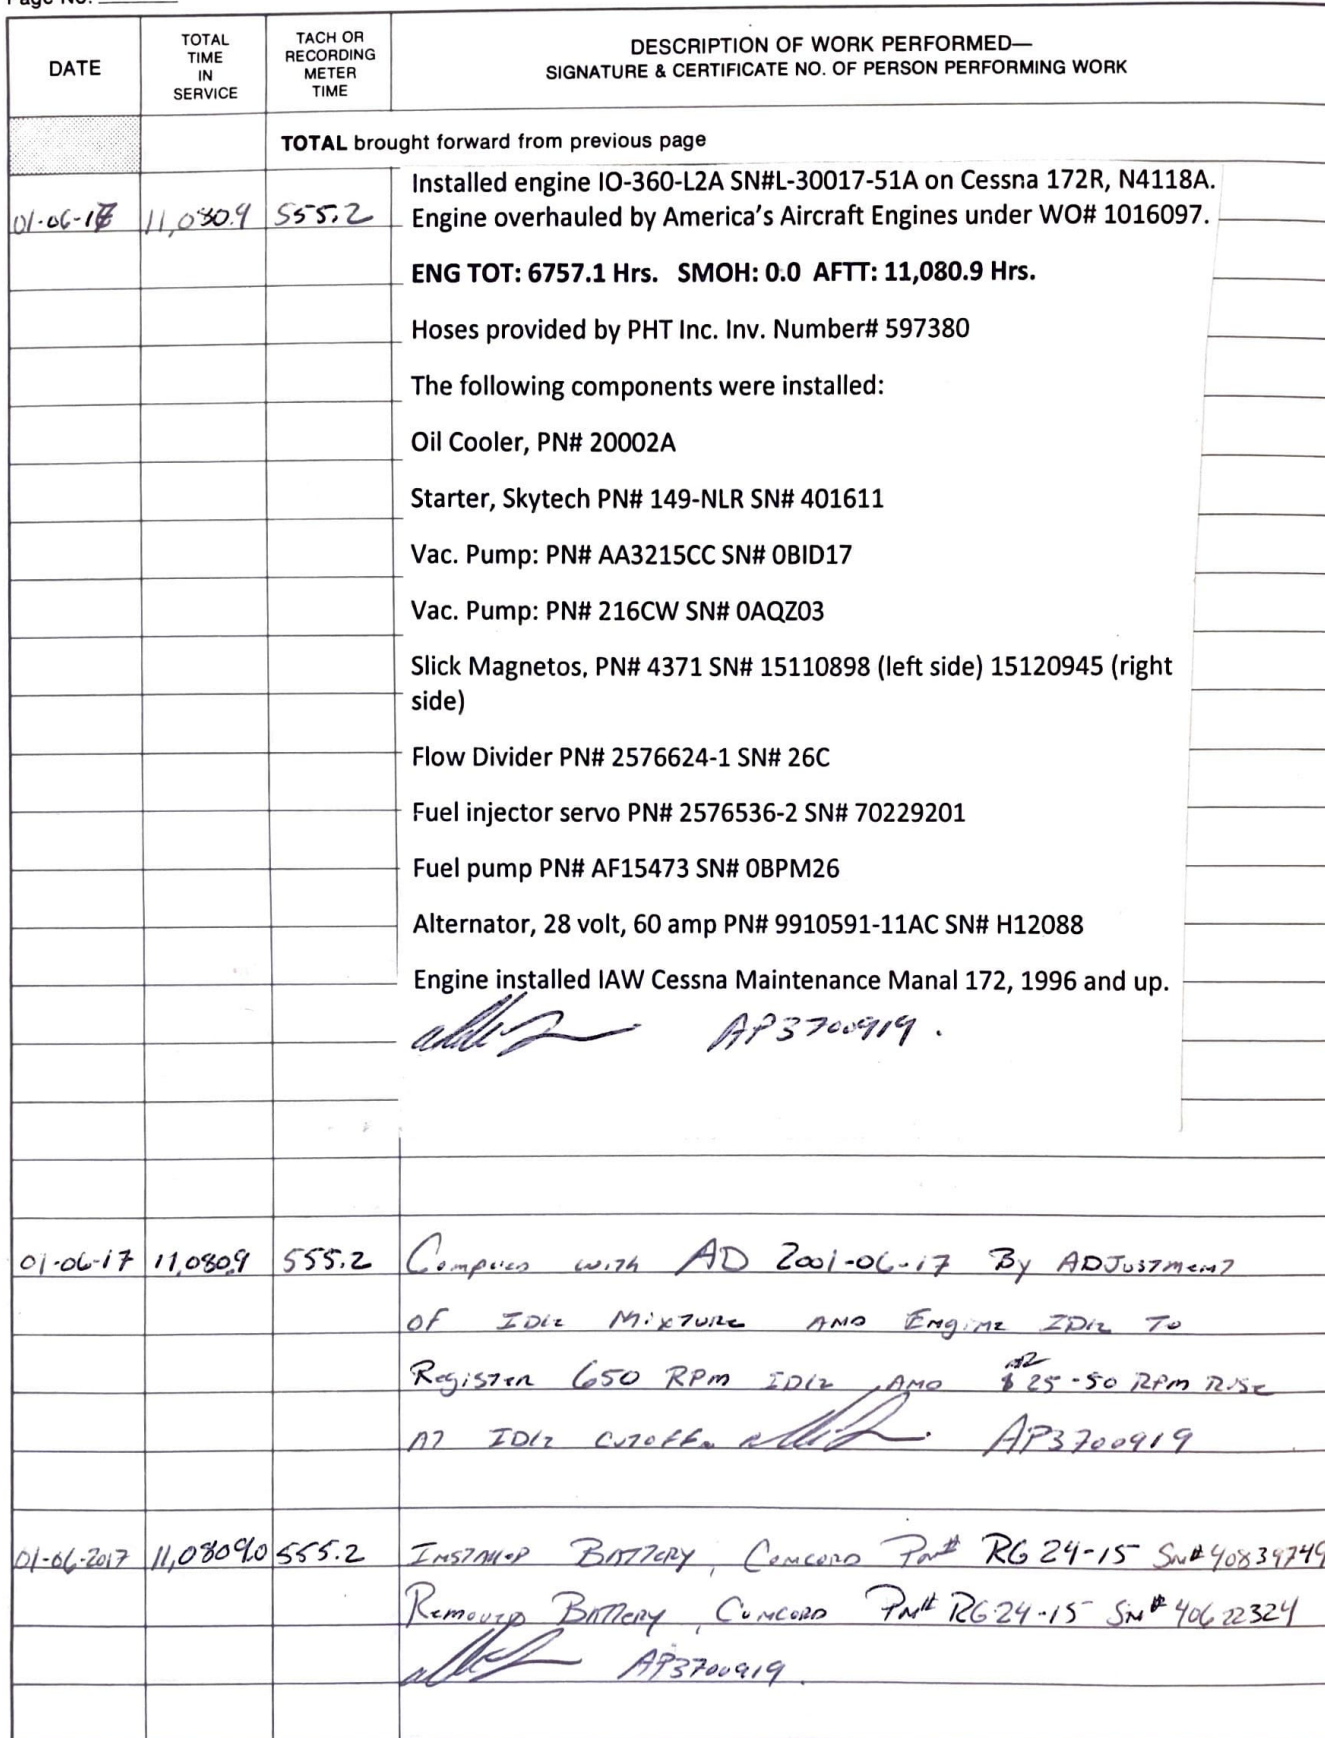 Page No.
DATE
TOTAL TIME IN SERVICE
TACH OR RECORDING METER TIME
DESCRIPTION OF WORK PERFORMED—
SIGNATURE & CERTIFICATE NO. OF PERSON PERFORMING WORK
TOTAL brought forward from previous page
Installed engine IO-360-L2A SN#L-30017-51A on Cessna 172R, N4118A.
01-06-17 11,080.9 555.2 Engine overhauled by America's Aircraft Engines under WO# 1016097.
ENG TOT: 6757.1 Hrs. SMOH: 0.0 AFTT: 11,080.9 Hrs.
Hoses provided by PHT Inc. Inv. Number# 597380
The following components were installed:
Oil Cooler, PN# 20002A
Starter, Skytech PN# 149-NLR SN# 401611
Vac. Pump: PN# AA3215CC SN# 0BID17
Vac. Pump: PN# 216CW SN# 0AQZ03
Slick Magnetos, PN# 4371 SN# 15110898 (left side) 15120945 (right
side)
Flow Divider PN# 2576624-1 SN# 26C
Fuel injector servo PN# 2576536-2 SN# 70229201
Fuel pump PN# AF15473 SN# 0BPM26
Alternator, 28 volt, 60 amp PN# 9910591-11AC SN# H12088
Engine installed IAW Cessna Maintenance Manal 172, 1996 and up.
AP3700919.
01-06-17 11,080.9 555.2 Complied with AD 2001-06-17 By ADJustment
OF IDLE MixTURE AND EngiNE IDLE To
Register 650 RPM IDLE AND 25-50 RPM RISE
AT IDLE CUTOFF. AP3700919
01-06-2017 11,080.90 555.2 INSTALLED BATTERY, CONCORD PN# RG24-15 SN# 40839749
Removed BATTERY, CONCORD PN# RG24-15 SN# 40622324
AP3700919.